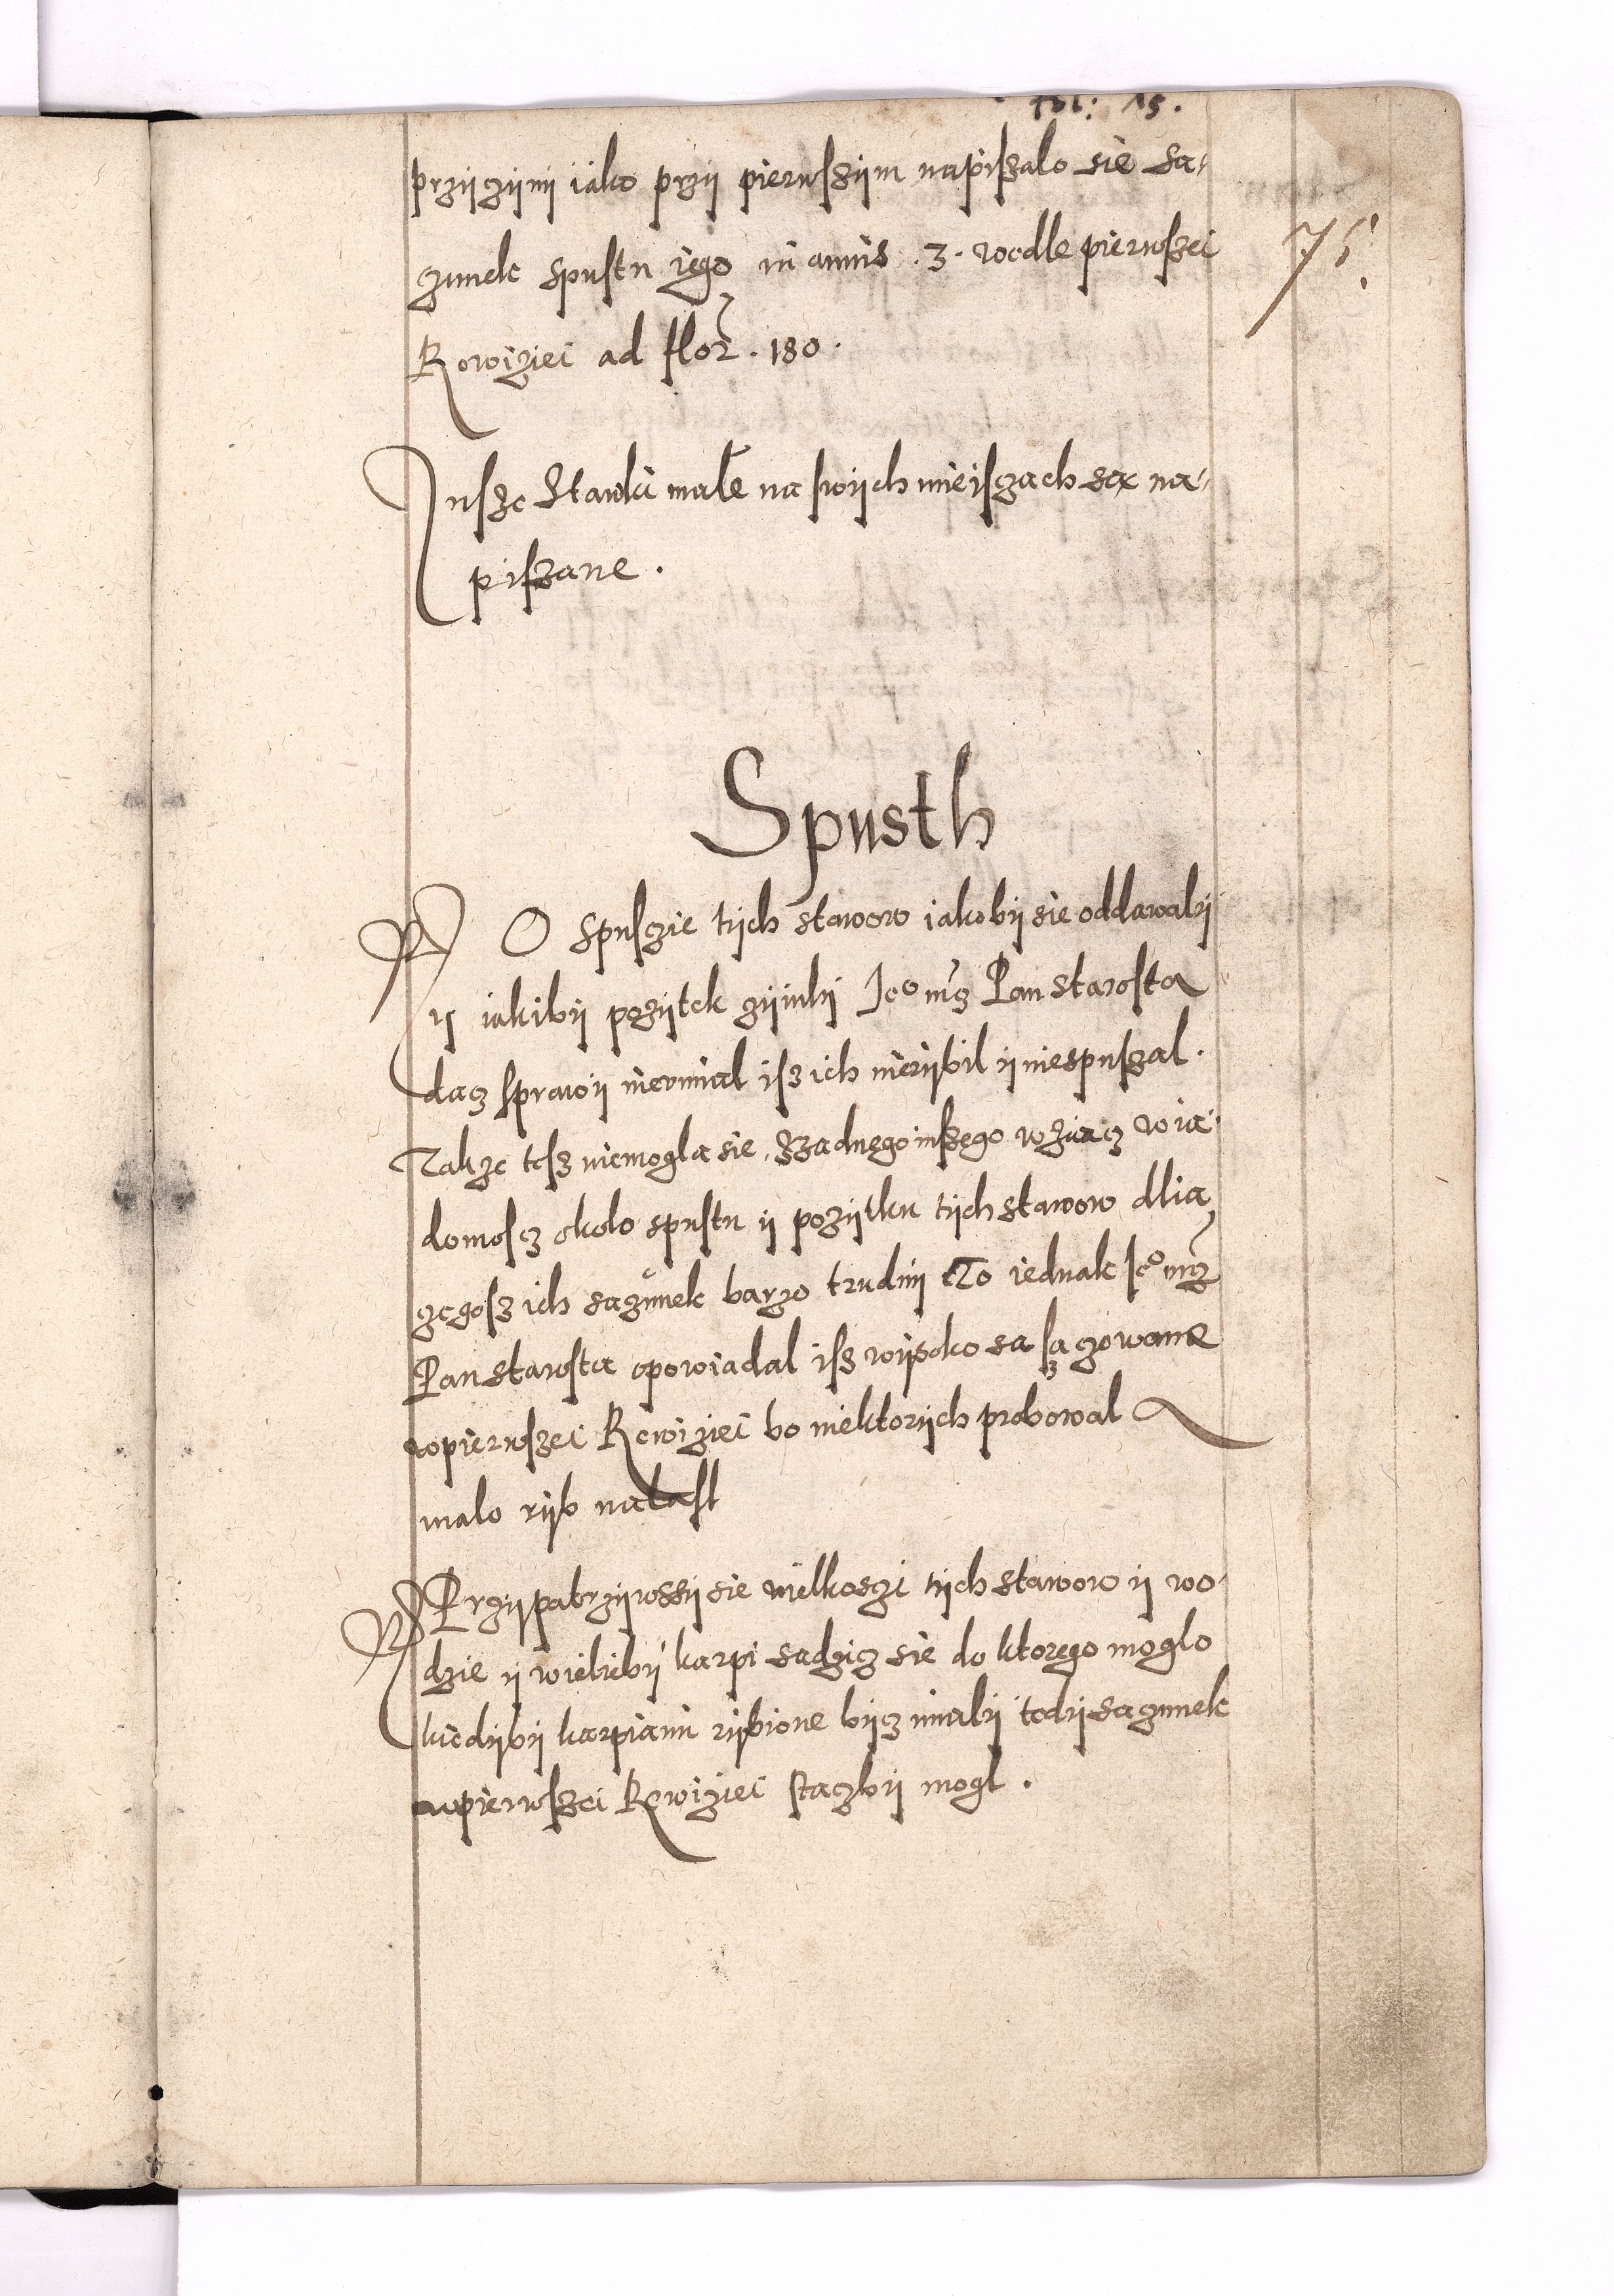 fol: 15.
75.
przyczyny iako przy pierwszym napiszalo sie sa-
zunek spustu iego in annis . 3 . wedle pierwszei
Rewiziei ad flor. 180.
Insze Stawki male na swych mieisczach sa na-
piszane .
Spusth
O spuscie tych stawow iakoby sie oddawaly
y iakiby pozytek czynily Jeo mcz Pan Starosta
dacz sprawy nieumial isz ich nierybil y niespuszal .
Takze tesz niemogla sie zadnego inszego wziacz wia-
domoscz okolo spustu y pozytku tych stawow dlia
czegosz ich sazunek barzo trudny To iednak Jeo mcz
Pan Starosta opowiadal isz wysoko sa sazowane
wpierwszei Rewiziei bo niektorych probowal
malo ryb nalasl
Przypatrzywssy sie wielkosczi tych stawow y wo-
dzie y wieleby karpi sadzicz sie do ktorego moglo
kiedyby karpiami rybione bycz mialy tedy sazunek
wpierwszei Rewiziei staczby mogl .